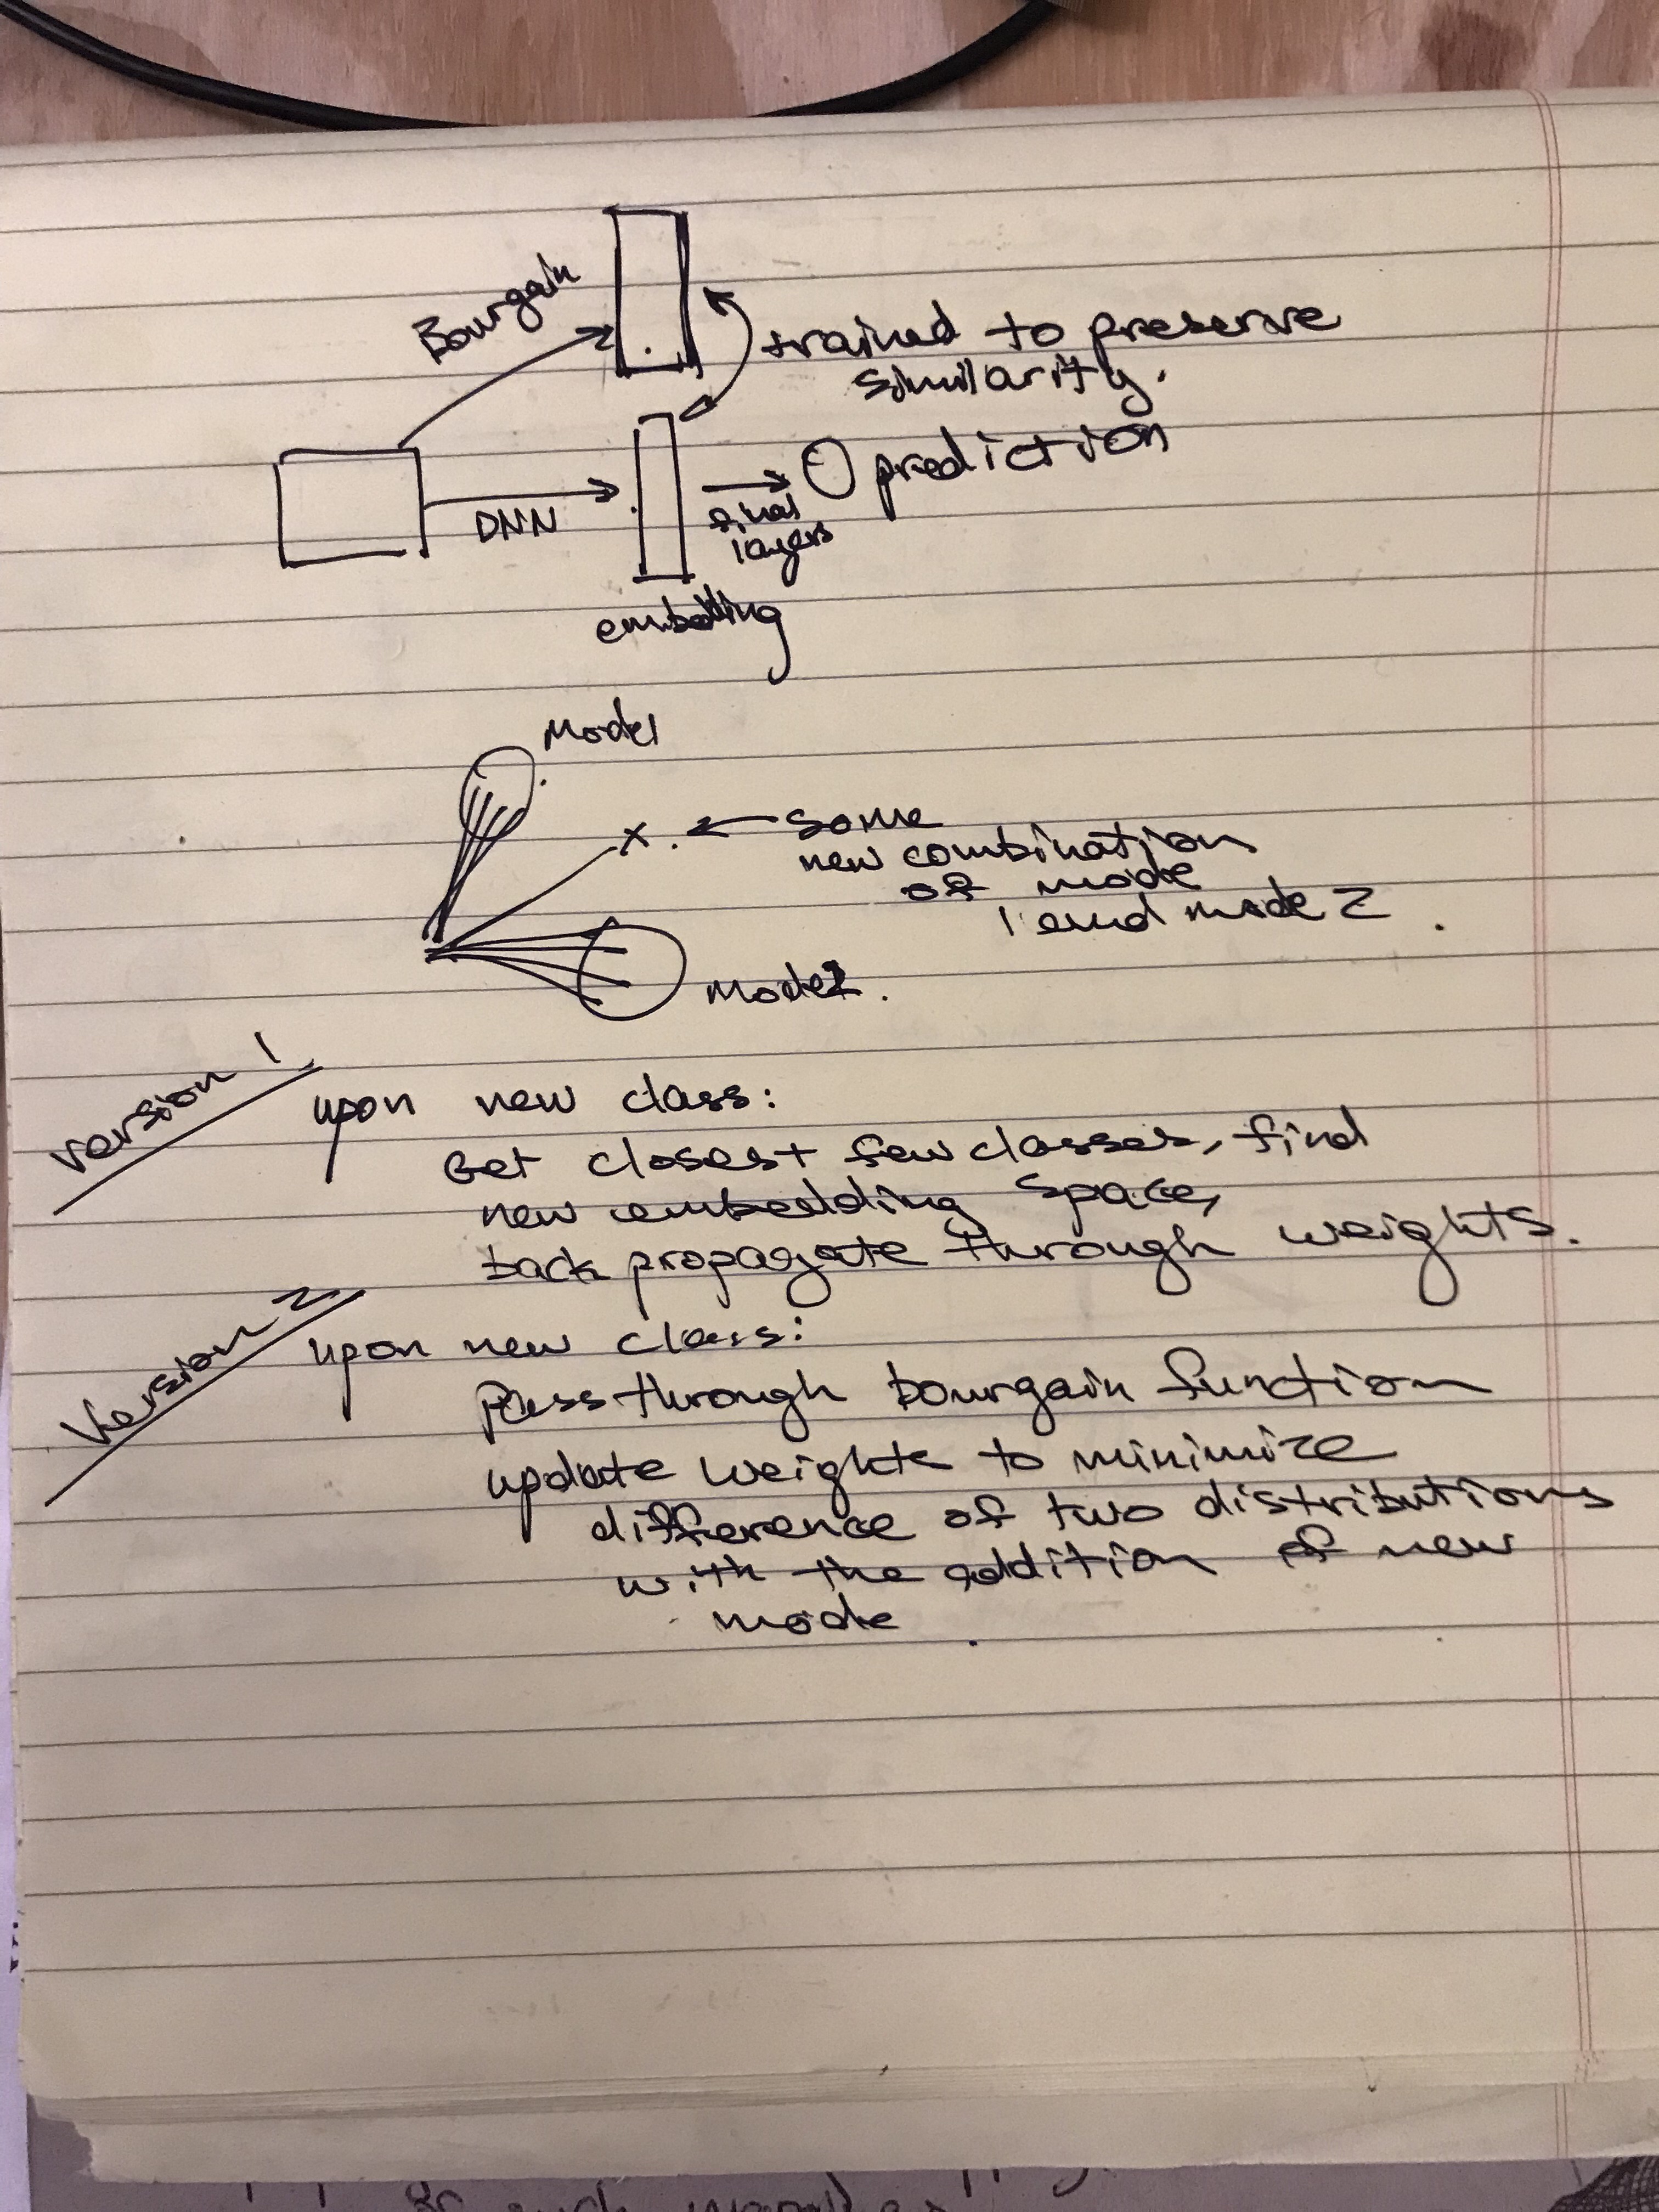 Bourgain
trained to preserve
similarity.
DNN
final
layers
prediction
embedding
Mode 1
x
some
new combination
of mode
1 and mode 2
Mode 2.
version 1
upon new class:
Get closest few classes, find
new embedding space,
back propagate through weights.
Version 2
upon new class:
Pass through bourgain function
update weights to minimize
difference of two distributions
with the addition of new
mode.